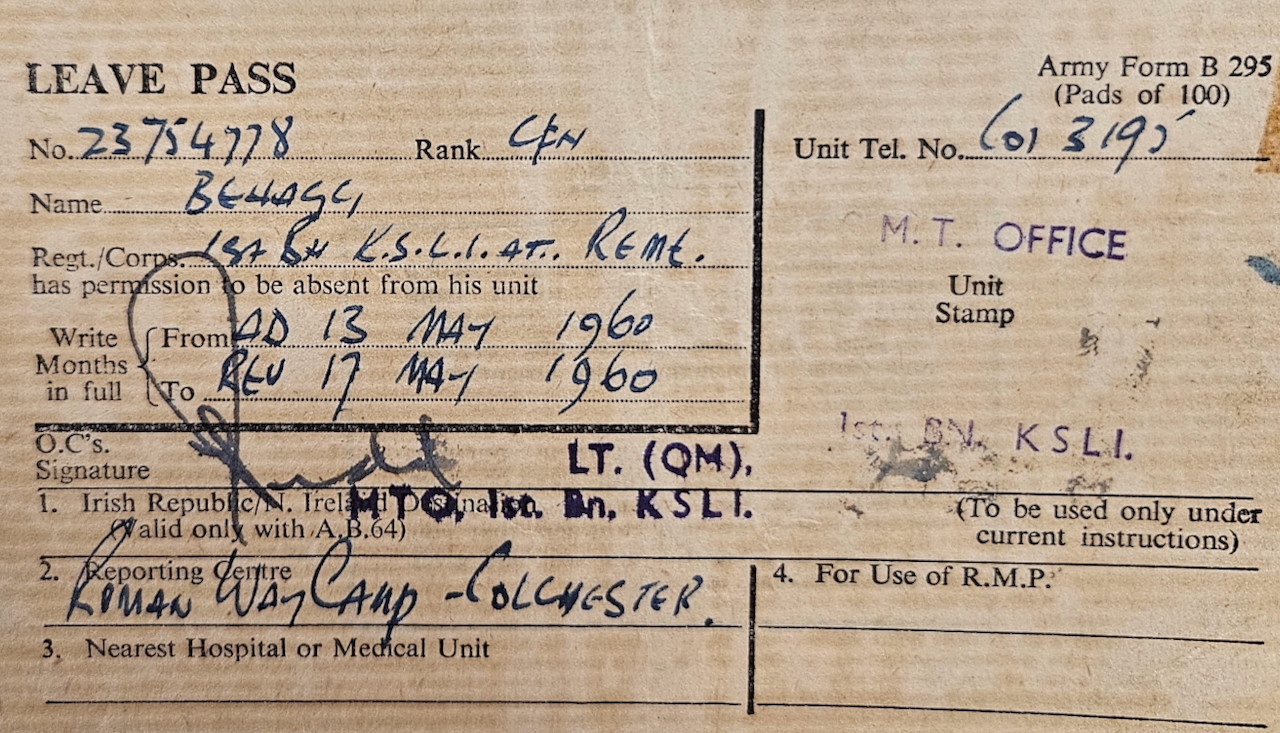 LEAVE PASS
Army Form B 295
(Pads of 100)
No. 23754778 Rank CFN
Unit Tel. No. Col 3195
Name BEHAGG
M. T. OFFICE
Regt./Corps. 1st BN K.S.L.I. AT. REME.
has permission to be absent from his unit
Unit
Stamp
Write
Months
in full
From AD 13 MAY 1960
To REV 17 MAY 1960
1st. BN. KSLI.
O.C's.
Signature
LT. (QM).
MTO, 1st. Bn, KSLI.
1. Irish Republic/N. Ireland Destination
(Valid only with A.B.64)
(To be used only under
current instructions)
2. Reporting Centre
ROMAN WAY CAMP - COLCHESTER.
4. For Use of R.M.P.
3. Nearest Hospital or Medical Unit